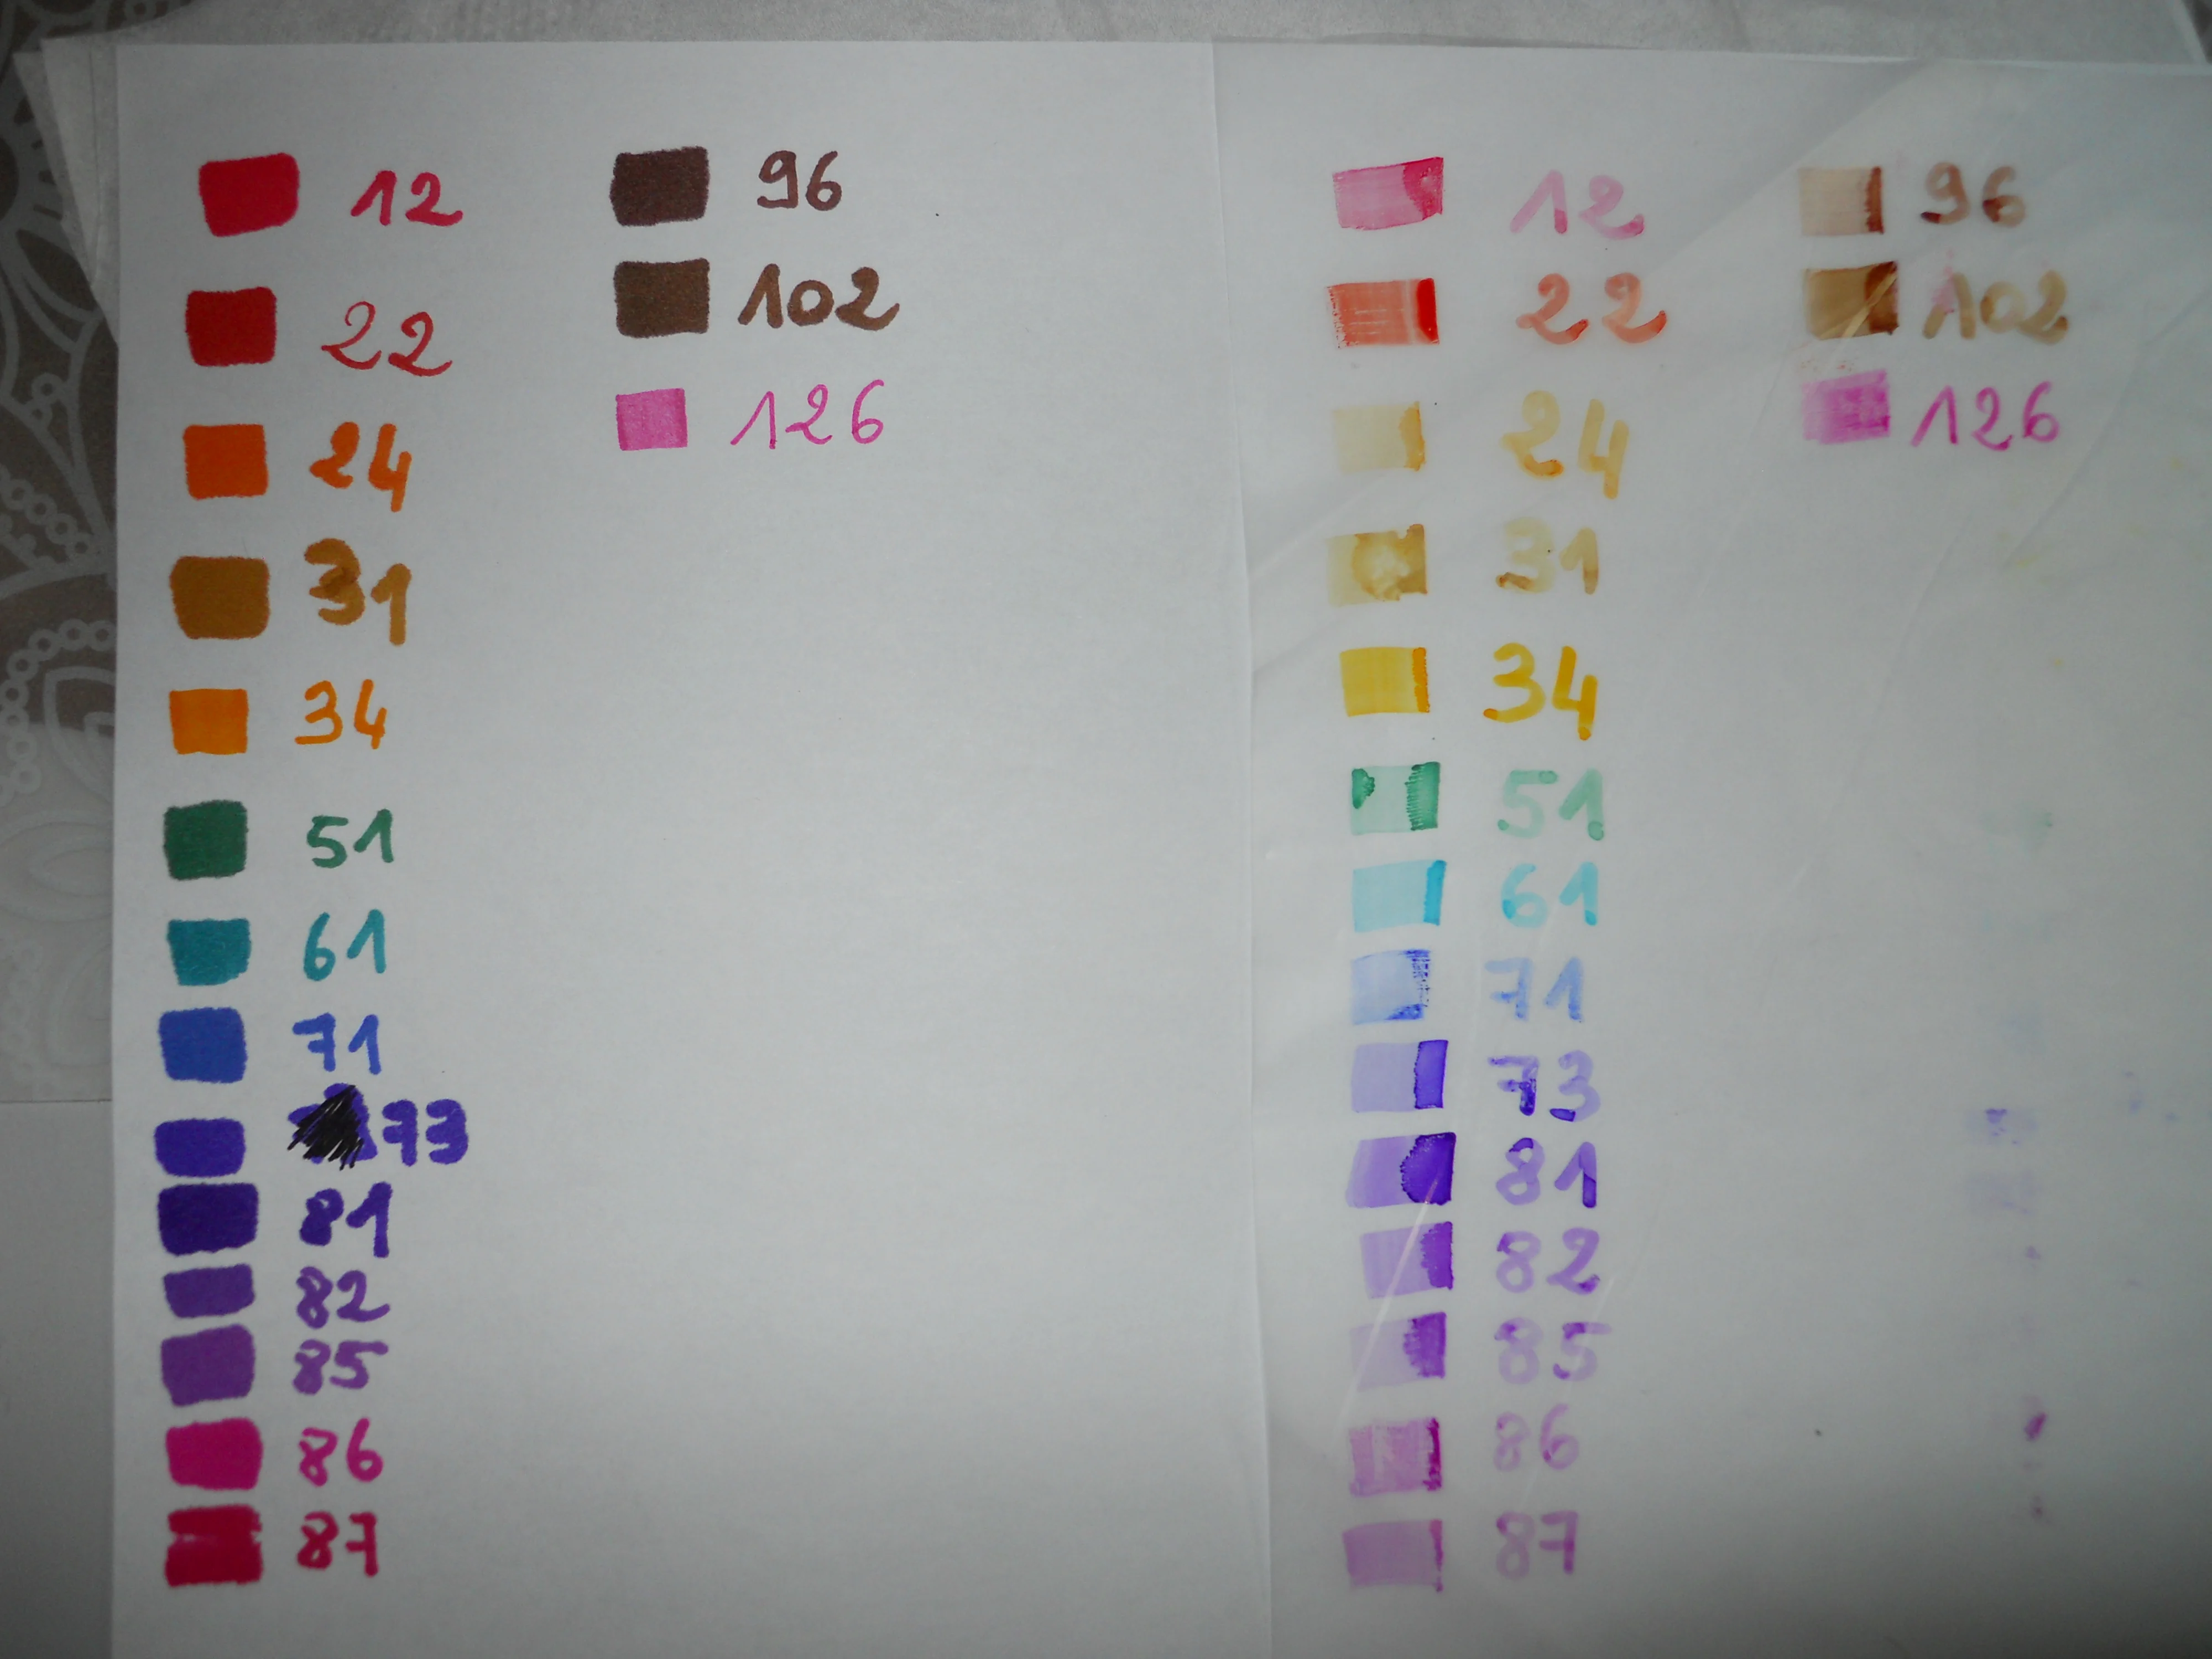 12
22
24
31
34
51
61
71
73
81
82
85
86
87
96
102
126
12
22
24
31
34
51
61
71
73
81
82
85
86
87
96
102
126